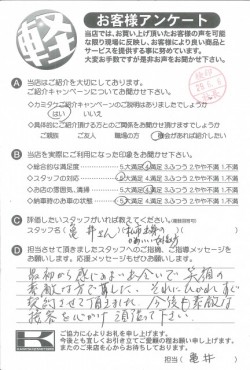 軽
お客様アンケート
当店では、お買い上げ頂いたお客様の声を可能
な限り現場に反映し、お客様により良い商品と
サービスを提供する事に努めています。
大変お手数ですが是非お声をお聞かせ下さい。
A 当店はご紹介を大切にしております。
ご紹介キャンペーンについてお聞かせ下さい。
はい いいえ
ご親族 ご友人 職場の方 機会があれば紹介したい
B 当店を実際にご利用になった印象をお聞かせ下さい。
総合的な満足度 5大満足 4満足 3ふつう 2やや不満 1不満
スタッフの対応 5大満足 4満足 3ふつう 2やや不満 1不満
お店の雰囲気、清掃 5大満足 4満足 3ふつう 2やや不満 1不満
納車時のお車の状態 5大満足 4満足 3ふつう 2やや不満 1不満
C 評価したいスタッフがいれば教えてください。
スタッフ名 亀井さん
D 担当させて頂きましたスタッフへのご指摘、ご指導メッセージを
お願いします。応援メッセージもぜひお願いします。
最初から感じのよいお会いで 笑顔の
素敵な方で
契約させて頂きました。今後も素敵な
接客を心がけ頑張って下さい。
K
ご協力に心よりお礼を申し上げます。
今後とも宜しくお引き立てご愛顧の程お願い申し上げます。
またのご来店を心からお待ちしております。
担当( 亀井 )